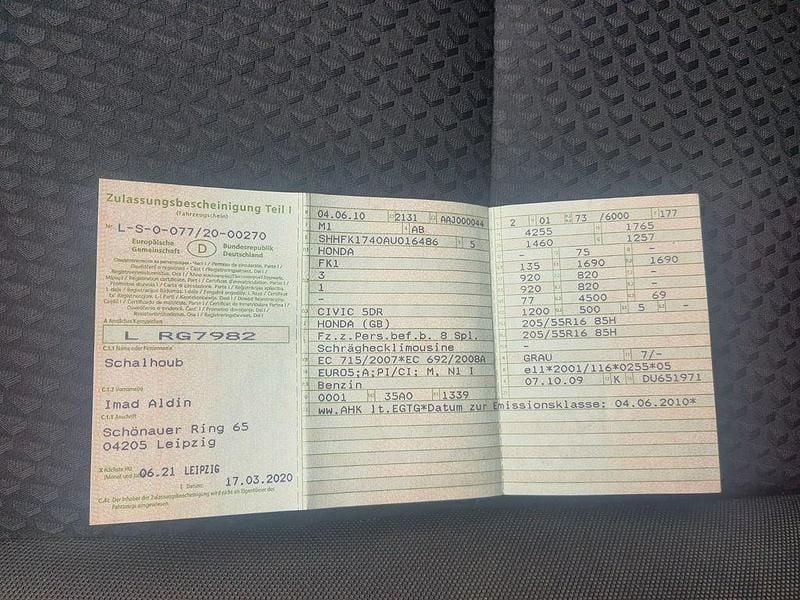 Zulassungsbescheinigung Teil I
(Fahrzeugschein)
Nr. L-S-0-077/20-00270
Europäische Gemeinschaft
D
Bundesrepublik Deutschland
L RG7982
C.1.1 Name oder Firmenname
Schalhoub
C.1.2 Vorname(n)
Imad Aldin
C.1.3 Anschrift
Schönauer Ring 65
04205 Leipzig
06.21 LEIPZIG
Datum: 17.03.2020
C.4c Der Inhaber der Zulassungsbescheinigung wird nicht als Eigentümer des
Fahrzeugs ausgewiesen.
04.06.10 2131 AAJ000044
M1 AB
SHHFK1740AU016486 5
HONDA
FK1
3
1
-
CIVIC 5DR
HONDA (GB)
Fz.z.Pers.bef.b. 8 Spl.
Schräghecklimousine
EC 715/2007*EC 692/2008A
EURO5;A;PI/CI; M, N1 I
Benzin
0001 35A0 1339
ww.AHK lt.EGTG*Datum zur Emissionsklasse: 04.06.2010*
2 01 73 /6000 177
4255 1765
1460 1257
- 75 -
135 1690 1690
920 820 -
920 820 -
77 4500 69
1200 500 5 -
205/55R16 85H
205/55R16 85H
-
GRAU 7/-
e11*2001/116*0255*05
07.10.09 K DU651971